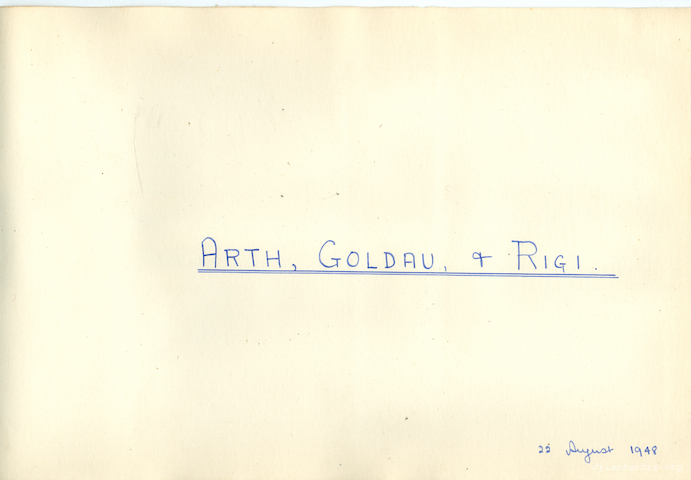 ARTH, GOLDAU, & RIGI.
22 August 1948